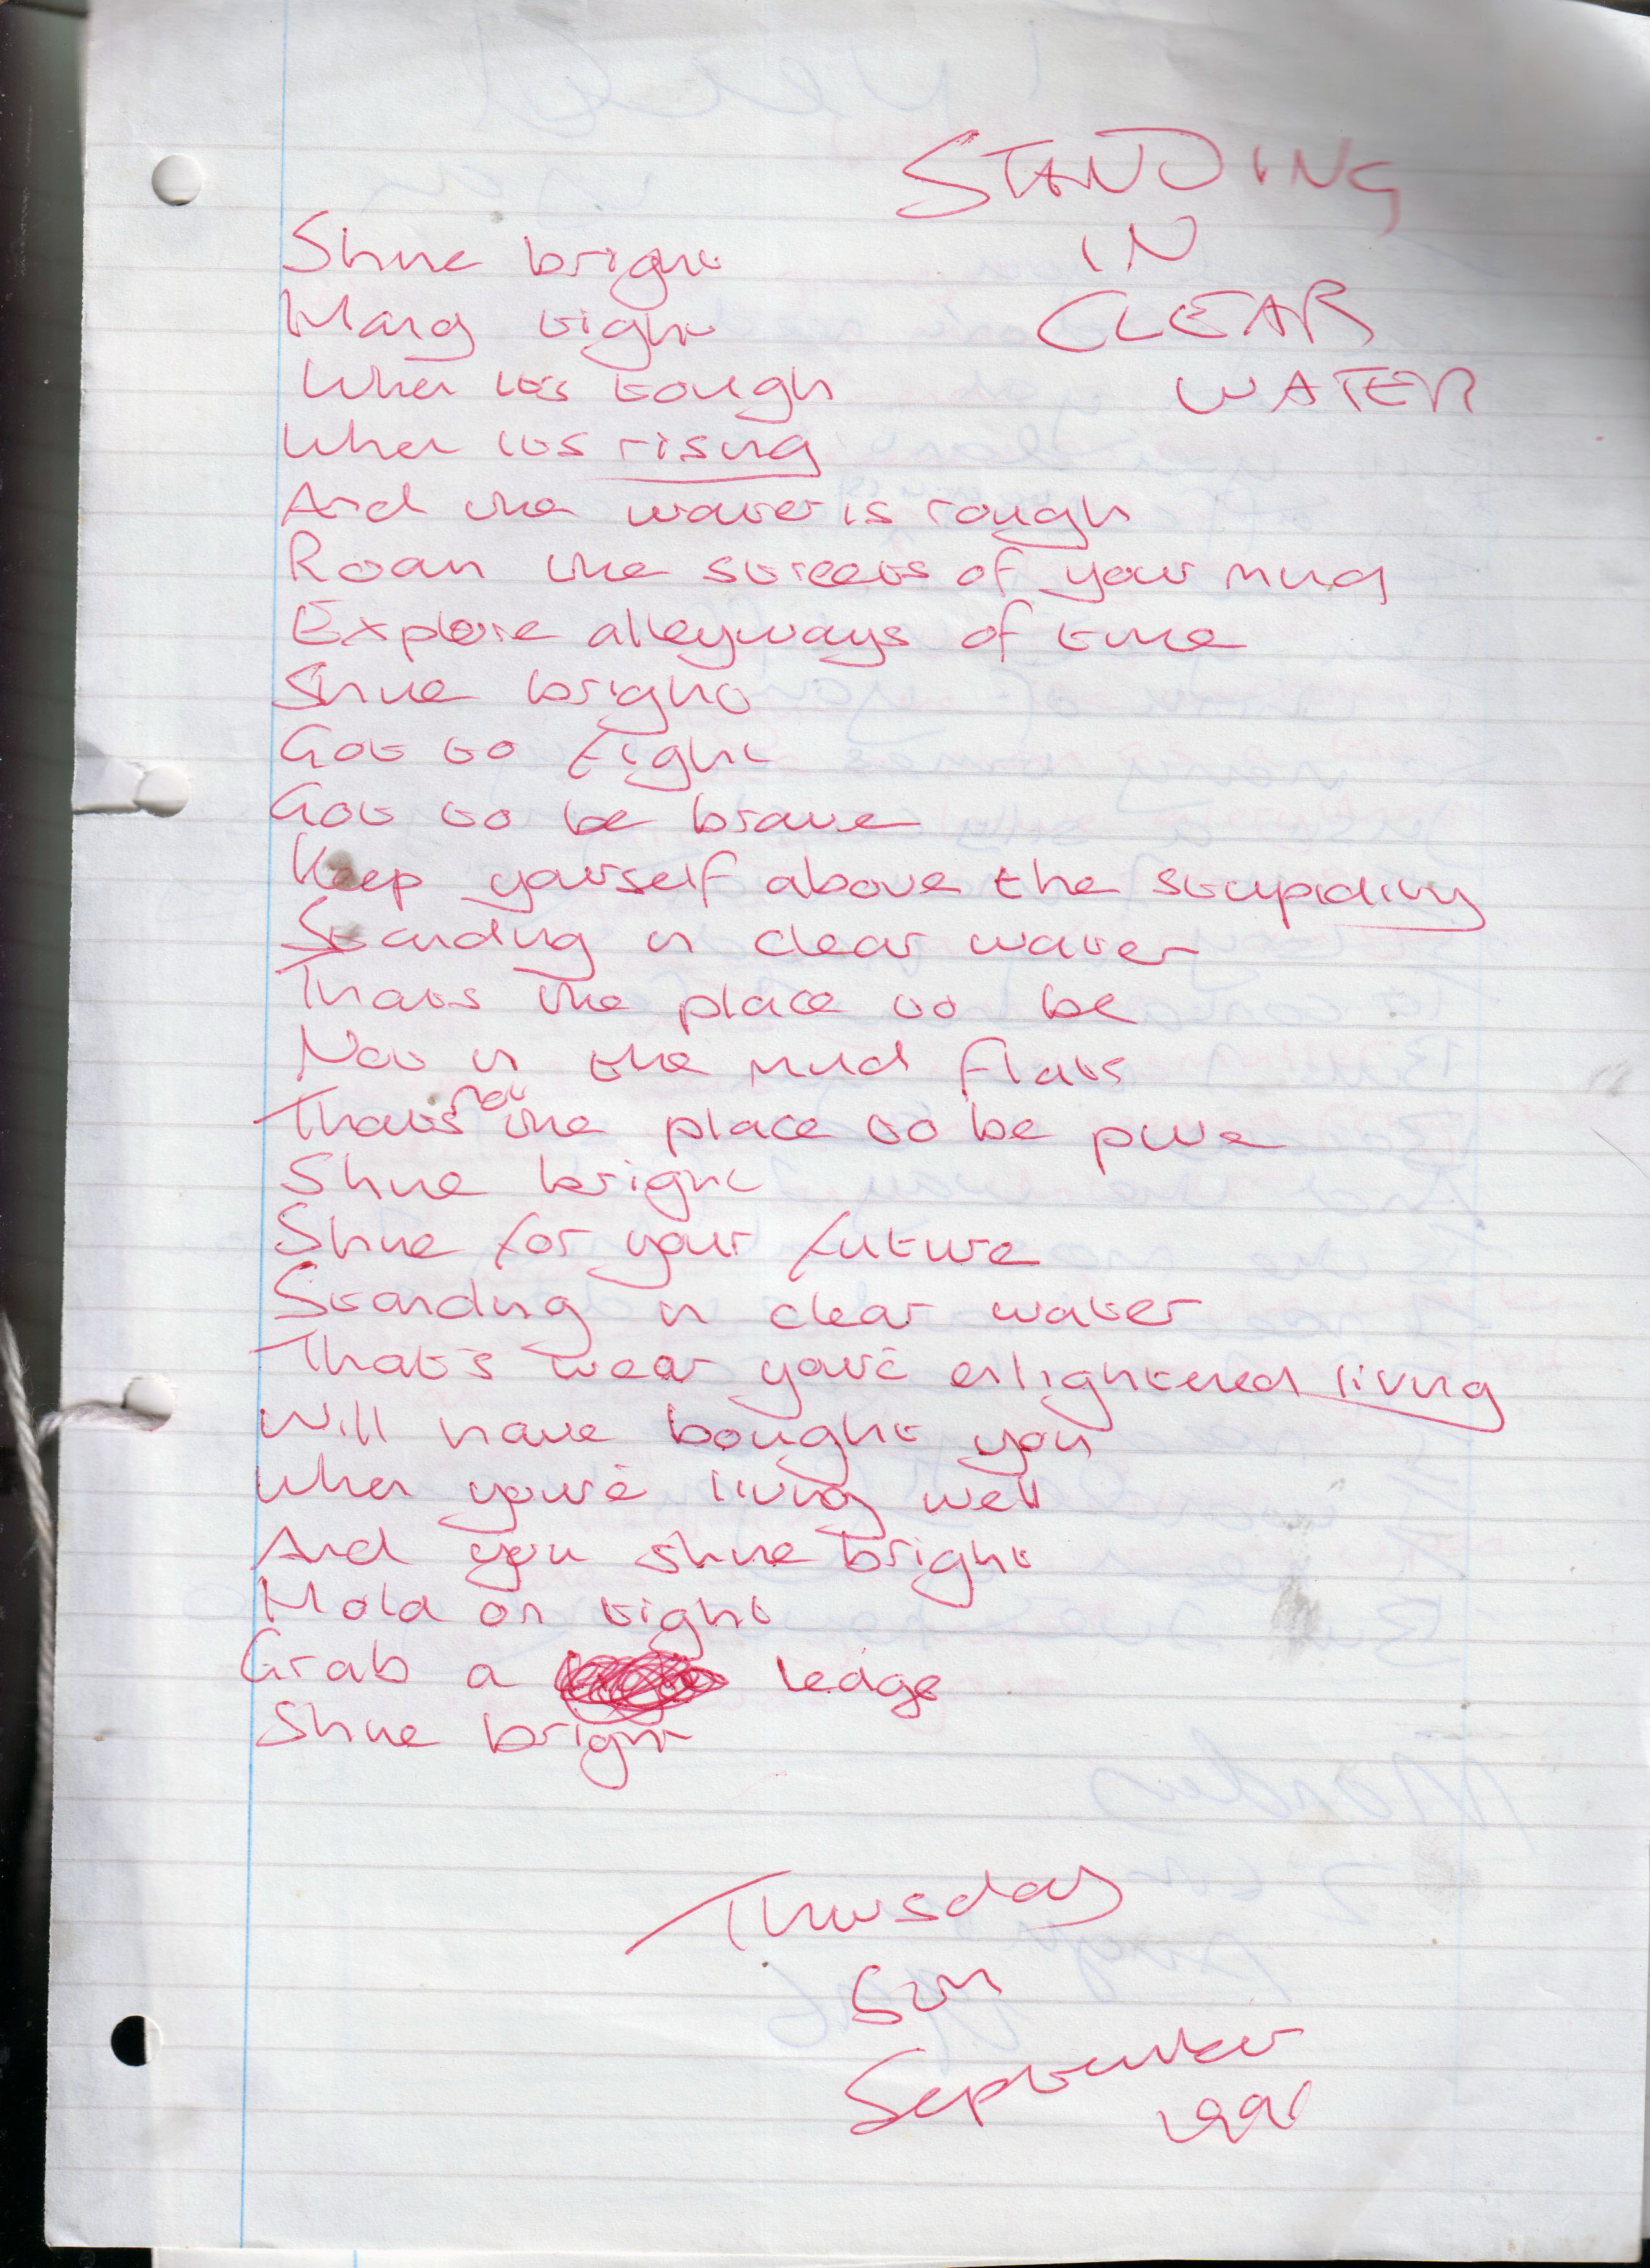 STANDING
IN
CLEAR
WATER
Shine bright
Hang tight
When its tough
When its rising
And the water is rough
Roam the streets of your mind
Explore alleyways of time
Shine bright
Got to fight
Got to be brave
Keep yourself above the stupidity
Standing in clear water
Thats the place to be
Not in the mud flats
Thats not the place to be pure
Shine bright
Shine for your future
Standing in clear water
That's wear you're enlightened living
Will have bought you
When you're living well
And you shine bright
Hold on tight
Grab a ledge
Shine bright
Thursday
5th
September